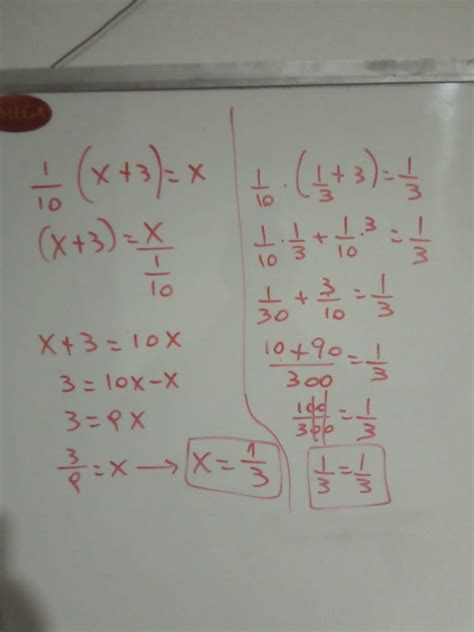 MEGA
1/10 (x+3)=x
(x+3)= x/(1/10)
x+3=10x
3=10x-x
3=9x
3/9=x → x=1/3
1/10 · (1/3+3)=1/3
1/10 · 1/3 + 1/10 · 3 = 1/3
1/30 + 3/10 = 1/3
10+90/300 = 1/3
100/300 = 1/3
1/3 = 1/3